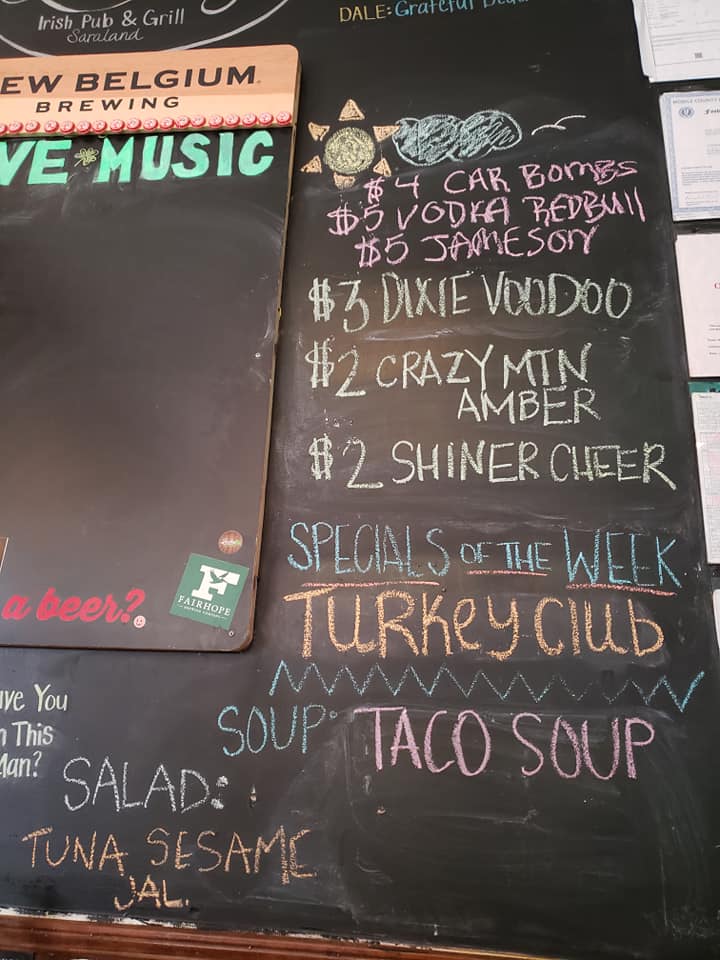 Irish Pub & Grill
Saraland
DALE: Grateful Dead
EW BELGIUM
BREWING
VE MUSIC
$4 CAR BOMBS
$5 VODKA REDBULL
$5 JAMESON
$3 DIXIE VOODOO
$2 CRAZY MTN
AMBER
$2 SHINER CHEER
SPECIALS OF THE WEEK
TURKEY CLUB
SOUP: TACO SOUP
a beer?
F
FAIRHOPE
ave You
n This
Man?
SALAD:
TUNA SESAME
JAL.